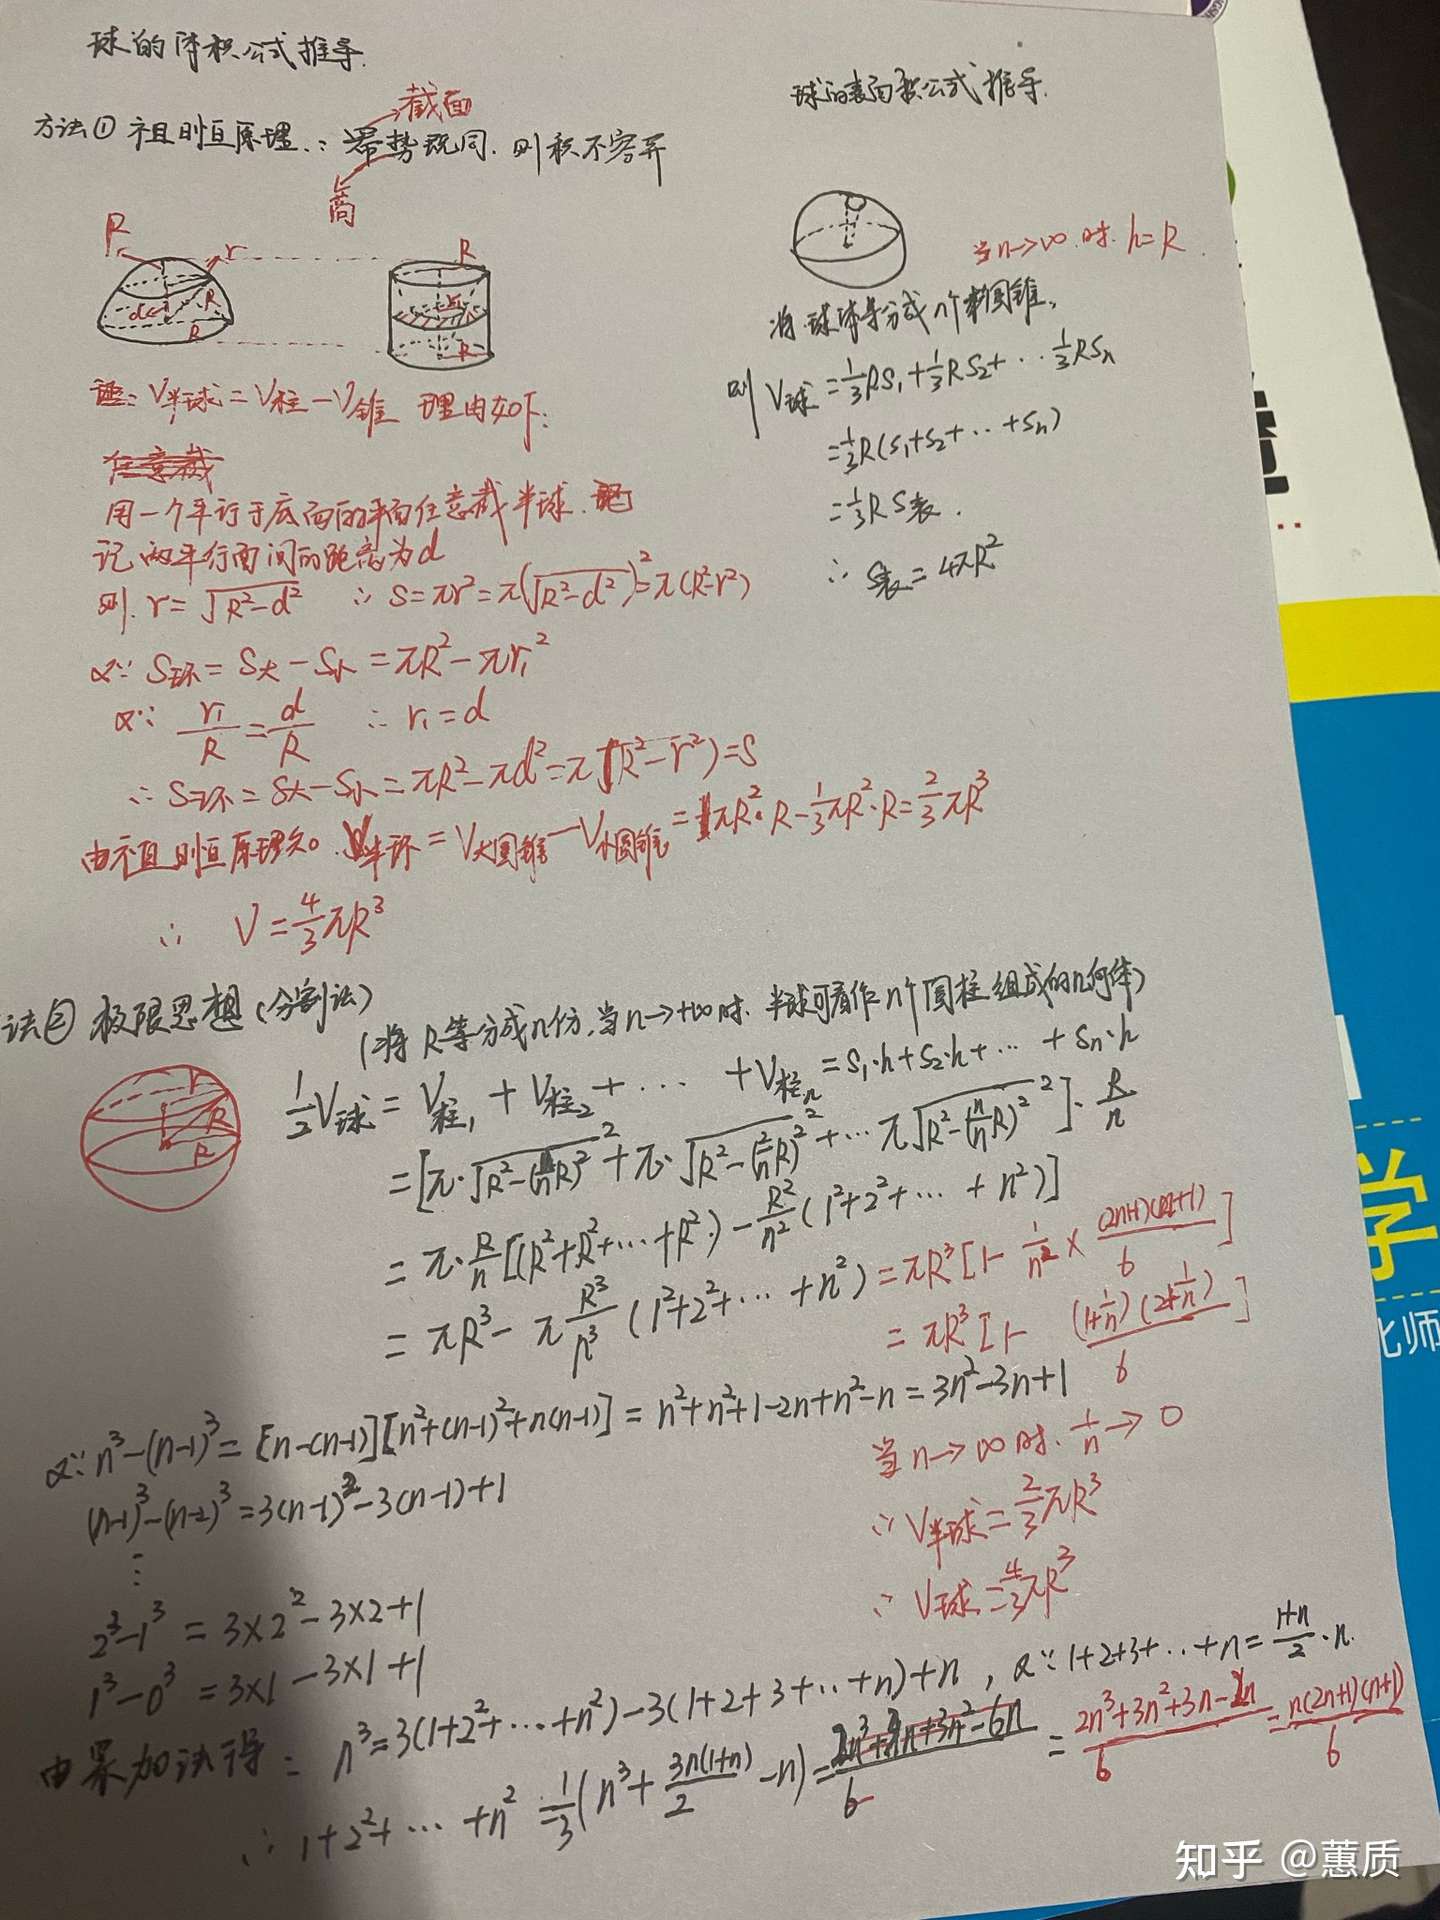 球的体积公式推导.
方法① 祖暅原理.: 幂势既同.则积不容异
截面
高
R
r
d
R
R
R
r₁
R
证: V半球=V柱-V锥 理由如下:
用一个平行于底面的平面任意截半球.
记两平行面间的距离为d
则. r=√(R²-d²) ∴ S=πr²=π(√(R²-d²))²=π(R²-r²)
又∵ S环=S大-S小=πR²-πr₁²
又∵ r₁/R=d/R ∴ r₁=d
∴ S环=S大-S小=πR²-πd²=π(R²-r²)=S
由祖暅原理知. V半球=V大圆锥-V小圆锥=πR²·R-1/3πR²·R=2/3πR³
∴ V=4/3πR³
球的表面积公式推导.
当n→∞时. h=R
将球体等分成n个圆锥,
则 V球=1/3RS₁+1/3RS₂+··1/3RSₙ
=1/3R(S₁+S₂+··+Sₙ)
=1/3RS表.
∴ S表=4πR²
法② 极限思想(分割法)
(将R等分成n份,当n→+∞时.半球可看作n个圆柱组成的几何体)
r
R
R
1/2V球=V柱₁+V柱₂+···+V柱ₙ=S₁·h+S₂·h+···+Sₙ·h
=[π·√(R²-(1/nR)²)²+π·√(R²-(2/nR)²)²+···π√(R²-(n/nR)²)²]·R/n
=π·R/n[(R²+R²+···+R²)-R²/n²(1²+2²+···+n²)]
=πR³-πR³/n³(1²+2²+···+n²)=πR³[1-1/n²×(2n+1)(n+1)/6]
=πR³[1-(1+1/n)(2+1/n)/6]
当n→∞时.1/n→0
∴ V半球=2/3πR³
∴ V球=4/3πR³
又∵ n³-(n-1)³=[n-(n-1)][n²+(n-1)²+n(n-1)]=n²+n²+1-2n+n²-n=3n²-3n+1
(n-1)³-(n-2)³=3(n-1)²-3(n-1)+1
⋮
2³-1³=3×2²-3×2+1
1³-0³=3×1-3×1+1
由累加法得: n³=3(1+2²+···+n²)-3(1+2+3+··+n)+n, 又∵1+2+3+··+n=(1+n)/2·n.
∴ 1+2²+···+n²=1/3(n³+3n(1+n)/2-n)=(2n³+3n²+3n-2n)/6=n(2n+1)(n+1)/6
学
化师
知乎 @蕙质